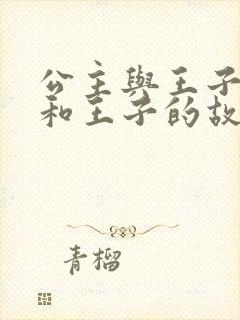 公主與王子
和王子的故
青榴